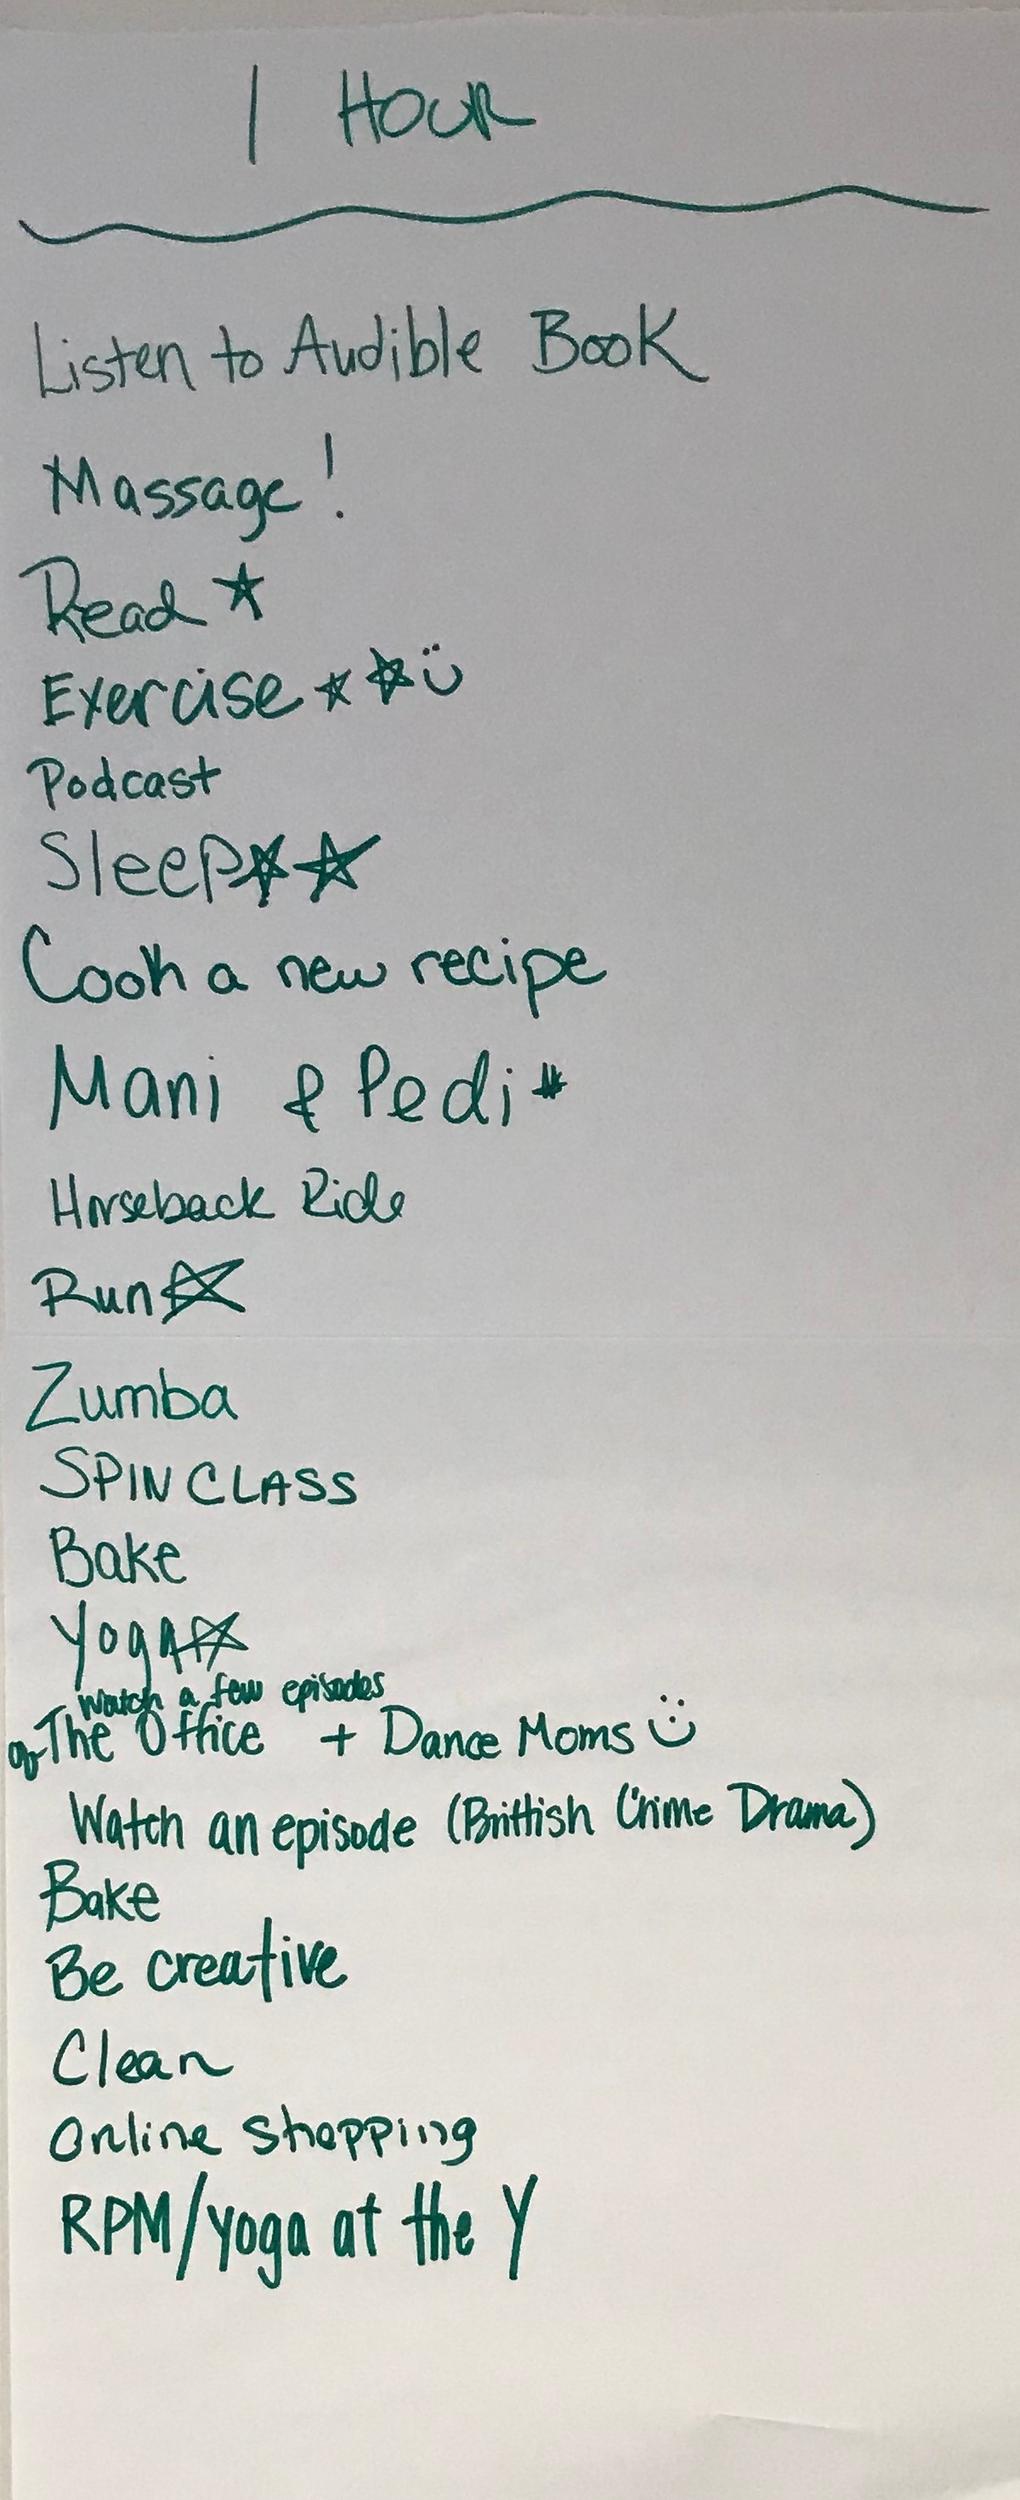 1 HOUR
Listen to Audible Book
Massage!
Read ★
Exercise ★ ★ ☺
Podcast
Sleep ★ ★
Cook a new recipe
Mani & Pedi *
Horseback Ride
Run ★
Zumba
SPIN CLASS
Bake
Yoga ★
Watch a few episodes
of The Office + Dance Moms ☺
Watch an episode (Brittish Crime Drama)
Bake
Be creative
Clean
Online shopping
RPM/yoga at the Y